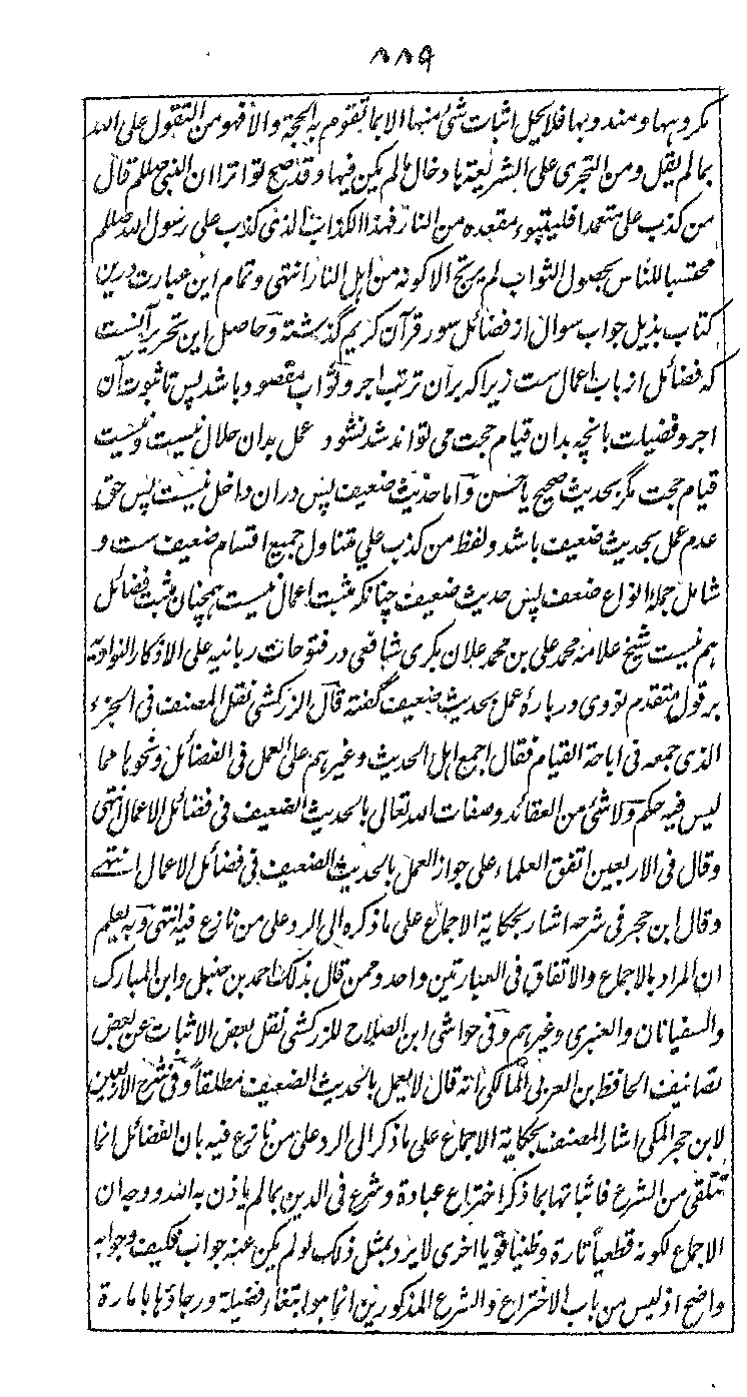 ٨٨٩
مکروہہا ومندوبہا فلا یحل اثبات شئ منہا الا بما تقوم بہ الحجۃ والا فہو من التقول علی اللہ
بما لم یقل ومن التجری علی الشریعۃ بادخال مالم یکن فیہا وقد صح تواترا ان النبی صللم قال
من کذب علی متعمدا فلیتبوء مقعدہ من النار فہذا الکذاب الذی کذب علی رسول اللہ صللم
محتسبا للناس بحصول الثواب لم یربح الا کونہ من اہل النار انتہی وتمام این عبارت درین
کتاب بذیل جواب سوال از فضائل سور قرآن کریم گذشتہ وحاصل این تحریر آنست
کہ فضائل از باب اعمال ست زیرا کہ بران ترتب اجر وثواب مقصود باشد پس تا ثبوت آن
اجر وفضیلت بانچہ بدان قیام حجت می تواند شد نشود عمل بدان حلال نیست ونیست
قیام حجت مگر بحدیث صحیح یا حسن واما حدیث ضعیف پس دران داخل نیست پس حق
عدم عمل بحدیث ضعیف باشد ولفظ من کذب علی متناول جمیع اقسام ضعیف ست و
شامل جملۂ انواع ضعف پس حدیث ضعیف چنانکہ مثبت اعمال نیست ہمچنان مثبت فضائل
ہم نیست شیخ علامہ محمد علی بن محمد علان بکری شافعی در فتوحات ربانیہ علی الاذکار النواویہ
بر قول متقدم نووی دربارۂ عمل بحدیث ضعیف گفتہ قال الزرکشی نقل المصنف فی الجزء
الذی جمعہ فی اباحۃ القیام فقال اجمع اہل الحدیث وغیرہم علی العمل فی الفضائل ونحوہا مما
لیس فیہ حکم ولا شئ من العقائد وصفات اللہ تعالی بالحدیث الضعیف فی فضائل الاعمال انتہی
وقال فی الاربعین اتفق العلماء علی جواز العمل بالحدیث الضعیف فی فضائل الاعمال انتہے
وقال ابن حجر فی شرحہ اشار بحکایۃ الاجماع علی ما ذکرہ الی الرد علی من نازع فیہ انتہی وبہ یعلم
ان المراد بالاجماع والاتفاق فی العبارتین واحد وممن قال بذلک احمد بن حنبل وابن المبارک
والسفیانان والعنبری وغیرہم وفی حواشی ابن الصلاح للزرکشی نقل بعض الاثبات عن بعض
تصانیف الحافظ بن العربی المالکی انہ قال لا یعمل بالحدیث الضعیف مطلقا وفی شرح الاربعین
لابن حجر المکی اشار المصنف بحکایۃ الاجماع علی ما ذکر الی الرد علی من نازع فیہ بان الفضائل انما
تتلقی من الشرع فاثباتہا بما ذکر اختراع عبادۃ وشرع فی الدین بما لم یاذن بہ اللہ ووجہ ان
الاجماع لکونہ قطعیاً تارۃ وظنیا قویا اخری لا یرد بمثل ذلک لو لم یکن عنہ جواب فکیف وجوابہ
واضح اذ لیس من باب الاختراع والشرع المذکورین انما ہو ابتغاء فضیلۃ ورجاؤہا بامارۃ